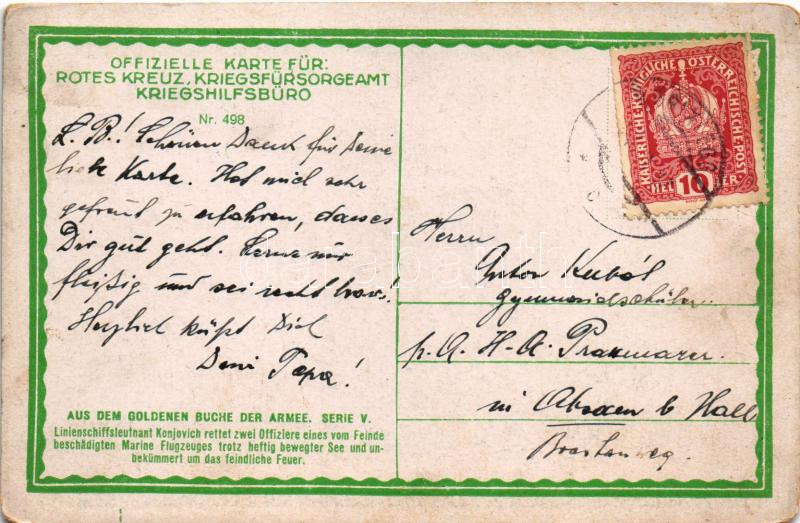 OFFIZIELLE KARTE FÜR:
ROTES KREUZ, KRIEGSFÜRSORGEAMT
KRIEGSHILFSBÜRO
Nr. 498
L. B.! Schönen Dank für Deine
liebe Karte. Hat mich sehr
gefreut zu erfahren, dass es
Dir gut geht. Lerne nur
fleißig und sei recht brav.
Herzlich küßt Dich
Dein Papa!
AUS DEM GOLDENEN BUCHE DER ARMEE. SERIE V.
Linienschiffsleutnant Konjovich rettet zwei Offiziere eines vom Feinde
beschädigten Marine Flugzeuges trotz heftig bewegter See und un-
bekümmert um das feindliche Feuer.
KAISERLICHE KÖNIGLICHE ÖSTERREICHISCHE POST
HELLER
10
Herrn
Anton
Gymnasialschüler
p. A. H. A. Praxmarer
in Absam b Hall
darabanth